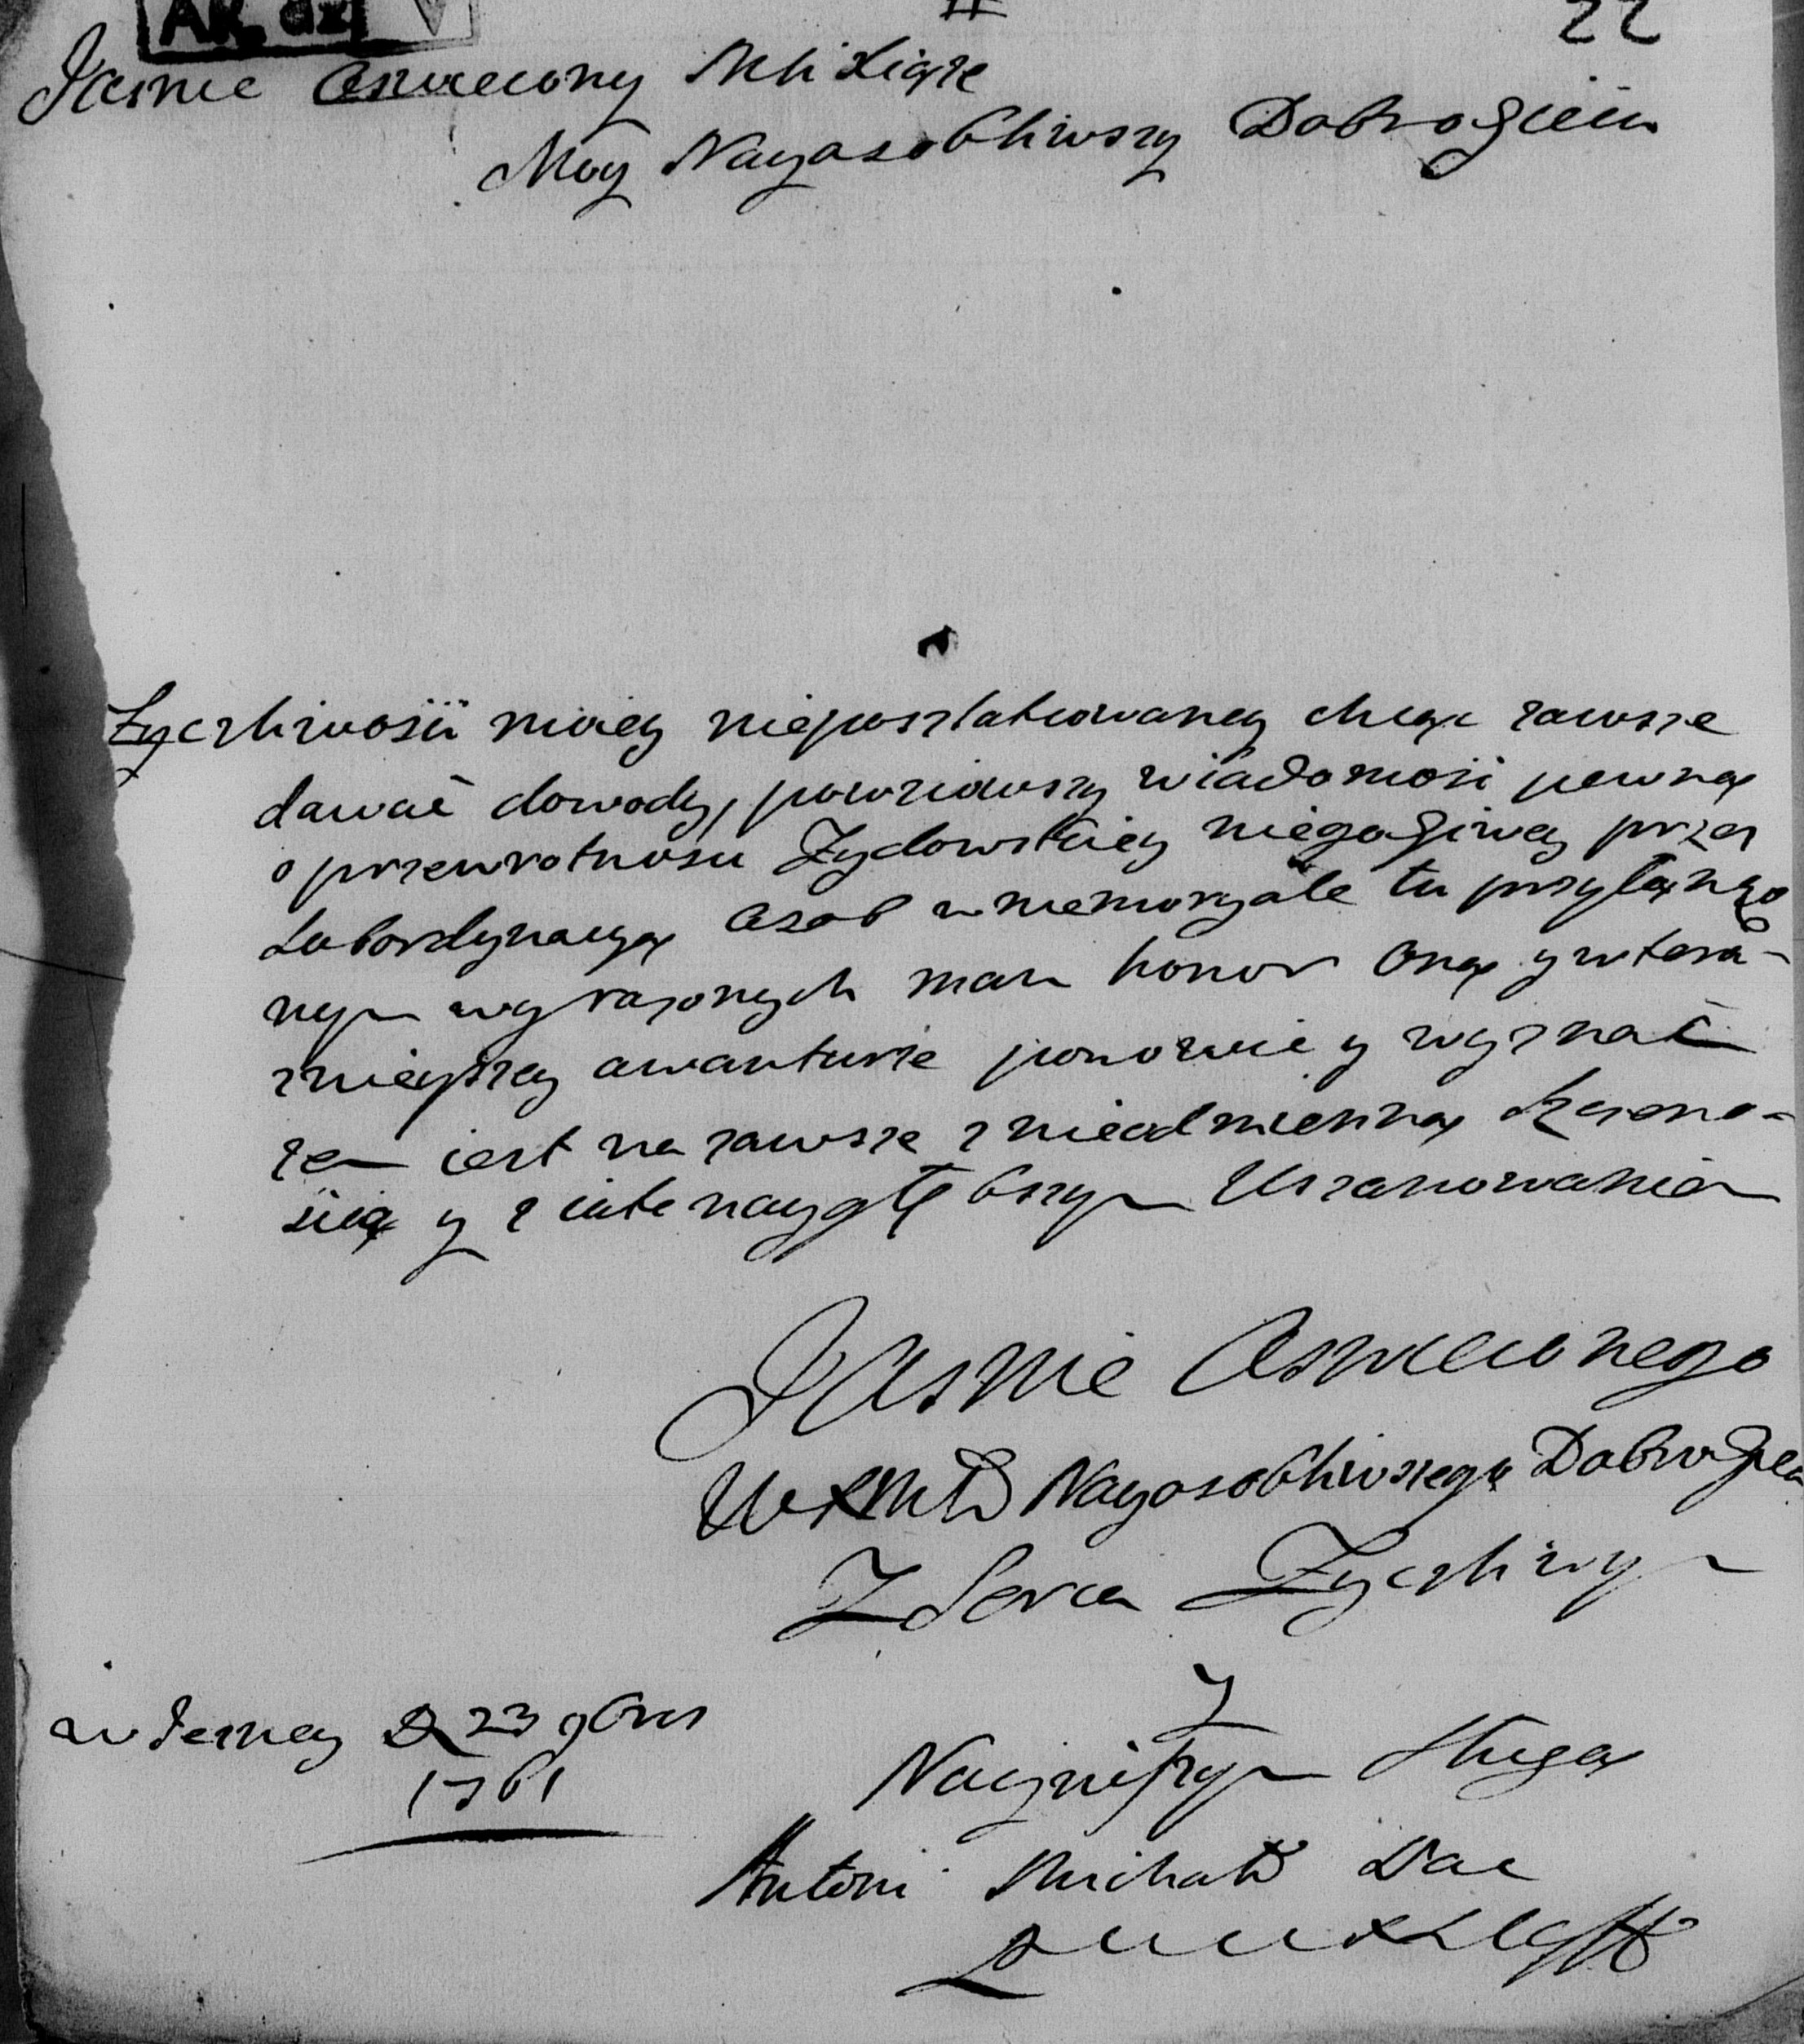 AK dz V
22
Jasnie Oswiecony Mci Xiąże
Moy Nayosobliwszy Dobrodzieiu
Zyczliwosci moiey nieposzlakowaney chcąc zawsze
dawać dowody, powziowszy wiadomosc pewną
o przewrotnosci Zydowskiey niegodziwey przez
subordynacyą osob w memoryale tu przyłączo
nym wyrazonych mam honor oną y w tera-
znieyszey awanturze ponowic y wyznać
zem iest na zawsze z nieodmienną Szczero-
scią y z iak naygłębszym Uszanowaniem
Jasnie Oswieconego
WXMCi Nayosobliwszego Dobrodzieia
Z Serca Zyczliwym
Y
Nayniższym Sługą
Antoni Michał Pac
w Jezney D 23 9bris
1761